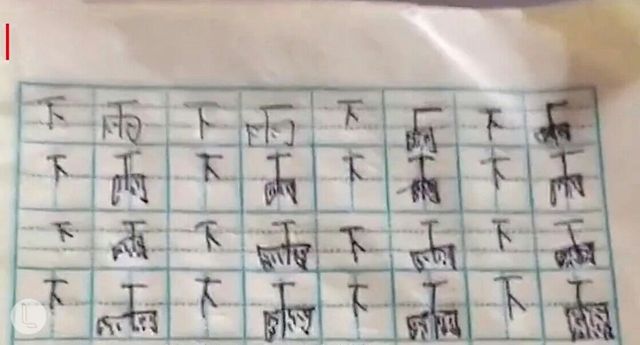 下雨下雨下雨下雨
下雨下雨下雨下雨
下雨下雨下雨下雨
下雨下雨下雨下雨